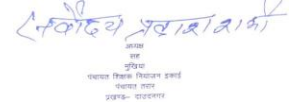 अध्यक्ष
सह
मुखिया
पंचायत शिक्षक नियोजन इकाई
पंचायत तरार
प्रखण्ड– दाउदनगर